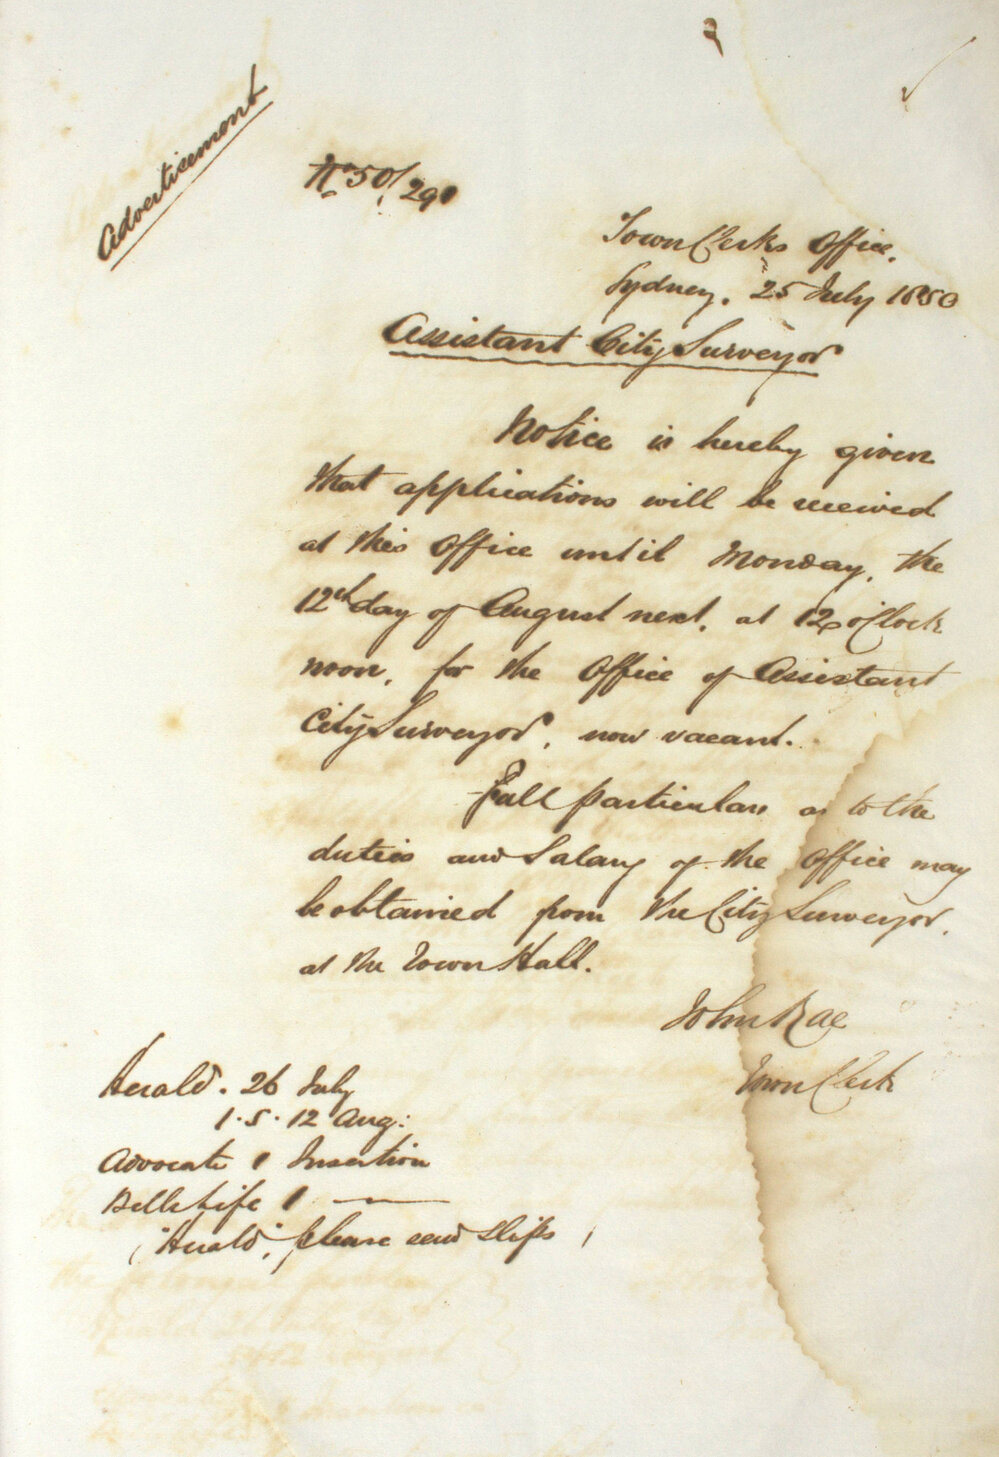 Advertisement
No 50/290
Town Clerks Office,
Sydney, 25 July 1850
Assistant City Surveyor
Notice is hereby given
that applications will be received
at this Office until Monday, the
12th day of August next, at 12 o'Clock
noon, for the Office of Assistant
City Surveyor, now vacant.
Full particulars as to the
duties and Salary of the Office may
be obtained from the City Surveyor,
at the Town Hall.
John Rae
Town Clerk
Herald. 26 July
1. 5. 12 Aug:
Advocate 1 Insertion
Bells Life 1 —
("Herald", please send slips)